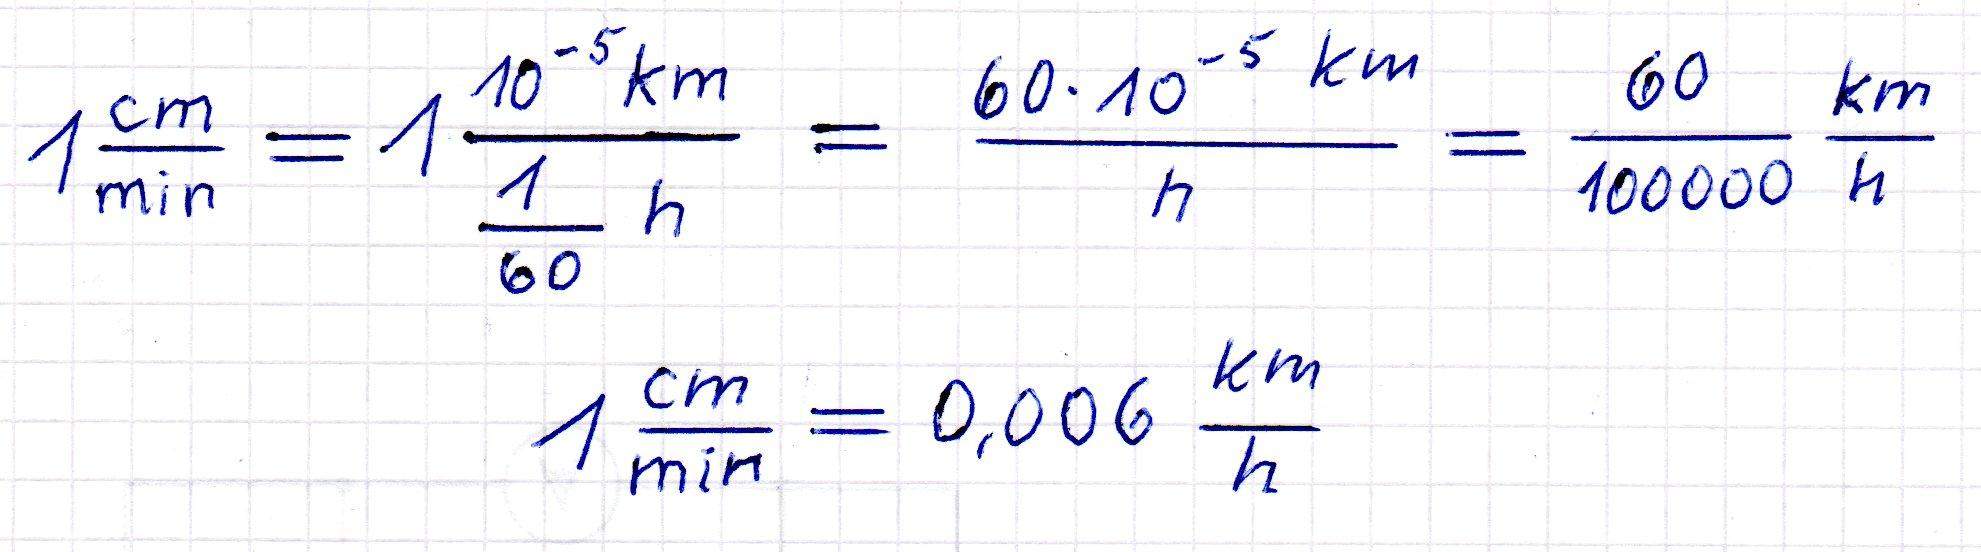 1 cm/min = 1 10⁻⁵ km / (1/60 h) = 60 · 10⁻⁵ km / h = 60/100000 km/h
1 cm/min = 0,006 km/h